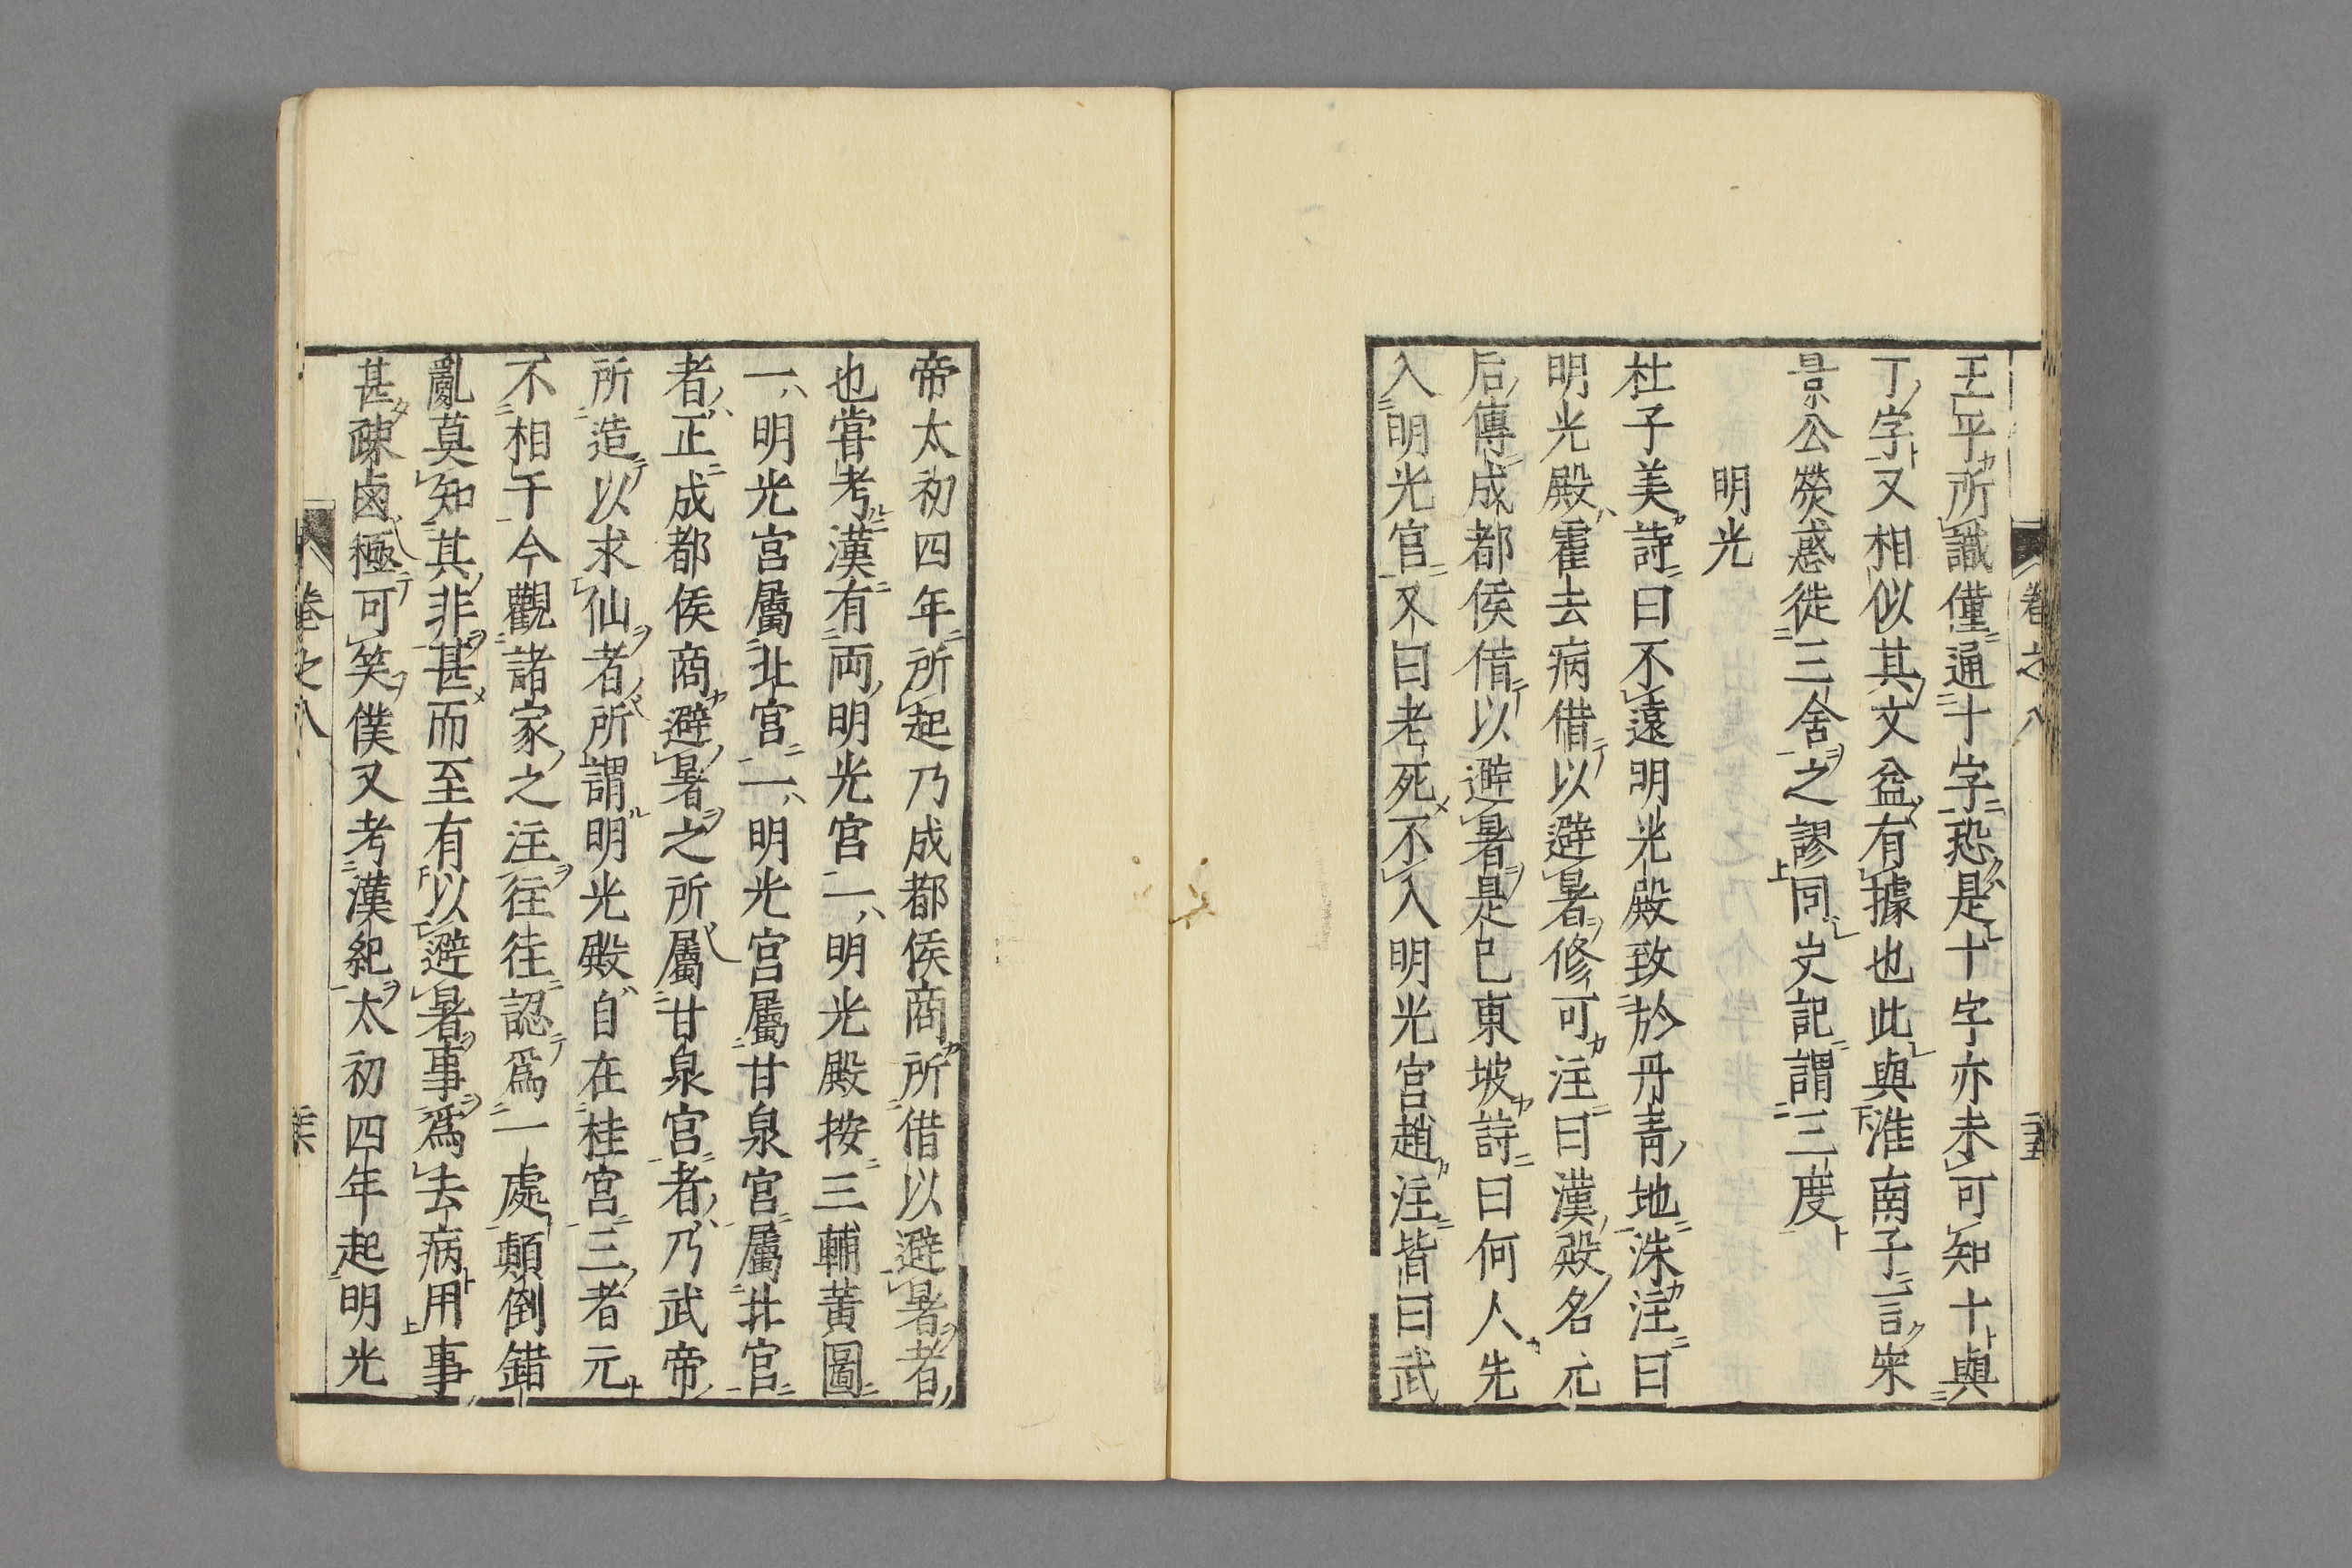 卷之八
王平所識僅通十字恐是十字亦未可知十與
丁字又相似其文益有據也此與淮南子言宋
景公熒惑徙三舍之謬同史記謂三度
明光
杜子美詩曰不遠明光殿致於丹青地洙注曰
明光殿霍去病借以避暑修可注曰漢殿名元
后傳成都侯借以避暑是已東坡詩曰何人先
入明光宮又曰老死不入明光宮趙注皆曰武
帝太初四年所起乃成都侯商所借以避暑者
也嘗考漢有両明光宮一明光殿按三輔黃圖
一明光宮屬北宮一明光宮屬甘泉宮屬北宮
者正成都侯商避暑之所屬甘泉宮者乃武帝
所造以求仙者所謂明光殿自在桂宮三者元
不相干今觀諸家之注往往認爲一處顛倒錯
亂莫知其非甚而至有以避暑事爲去病用事
甚疎鹵極可笑僕又考漢紀太初四年起明光
卷之八